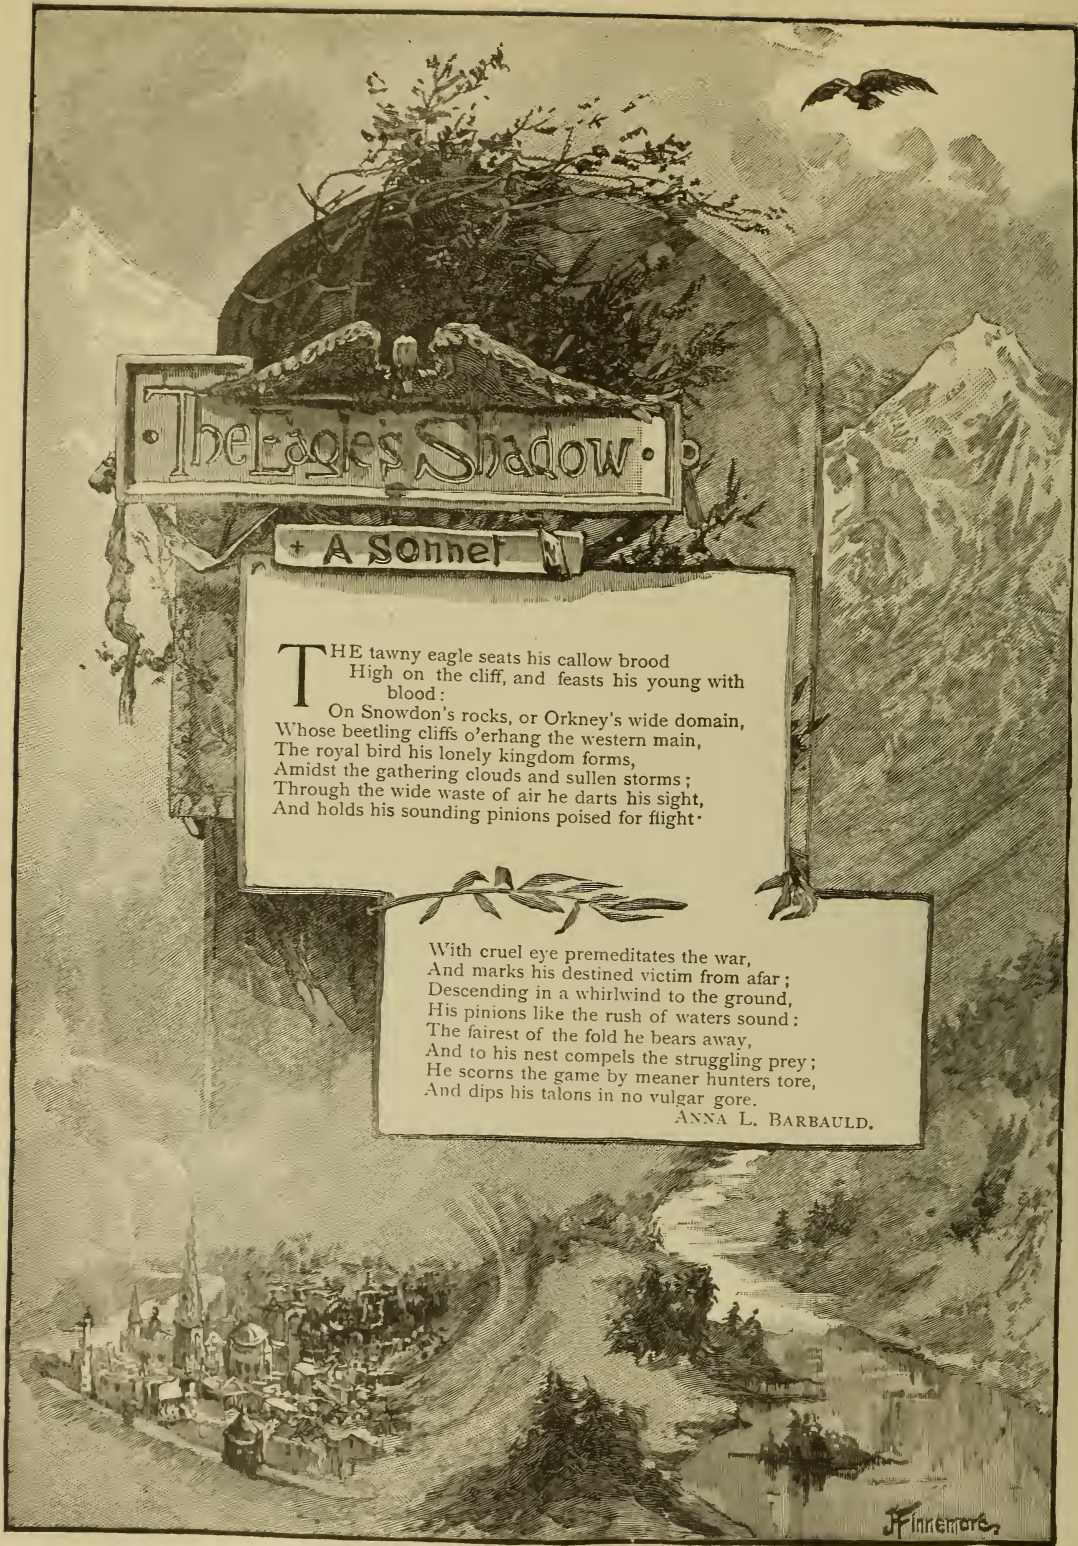 The Eagle's Shadow
A Sonnet
THE tawny eagle seats his callow brood
High on the cliff, and feasts his young with
blood:
On Snowdon's rocks, or Orkney's wide domain,
Whose beetling cliffs o'erhang the western main,
The royal bird his lonely kingdom forms,
Amidst the gathering clouds and sullen storms;
Through the wide waste of air he darts his sight,
And holds his sounding pinions poised for flight·
With cruel eye premeditates the war,
And marks his destined victim from afar;
Descending in a whirlwind to the ground,
His pinions like the rush of waters sound:
The fairest of the fold he bears away,
And to his nest compels the struggling prey;
He scorns the game by meaner hunters tore,
And dips his talons in no vulgar gore.
ANNA L. BARBAULD.
JFinnemore